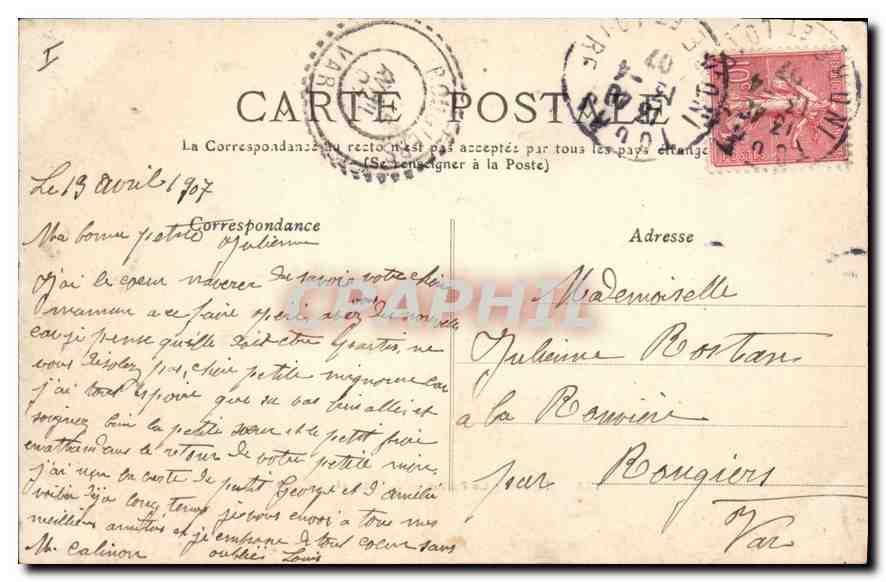 I
CARTE POSTALE
La Correspondance au recto n'est pas acceptée par tous les pays étrange
(Se renseigner à la Poste)
ROUGIERS
VAR
AVRIL
Le 13 avril 1907
Correspondance
Adresse
Ma bonne petite Julienne
J'ai le cœur navrer de savoir votre chère
maman a ce faire opere avez vous des nouvelle
car je pense qu'elle doit etre Guartis, ne
vous désolez pas, chère petite mignonne car
j'ai tout espoire que sa vas bien aller et
soignez bien la petite sœur et le petit frère
en athendans le retour de votre petite mère,
j'ai reçu la carte de petit George et d'amélie
voila déja long temps je vous envoi a tous mes
meilleurs amitiés et je embrasse de tout coeur sans
oubliés Louis
M. Calinon
Mademoiselle
Julienne Rostan
a la Rouvière
par Rougiers
Var
CPAPHIL